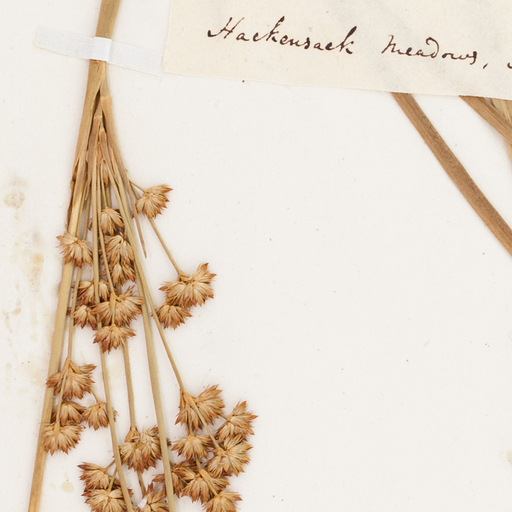 Hackensack Meadows,